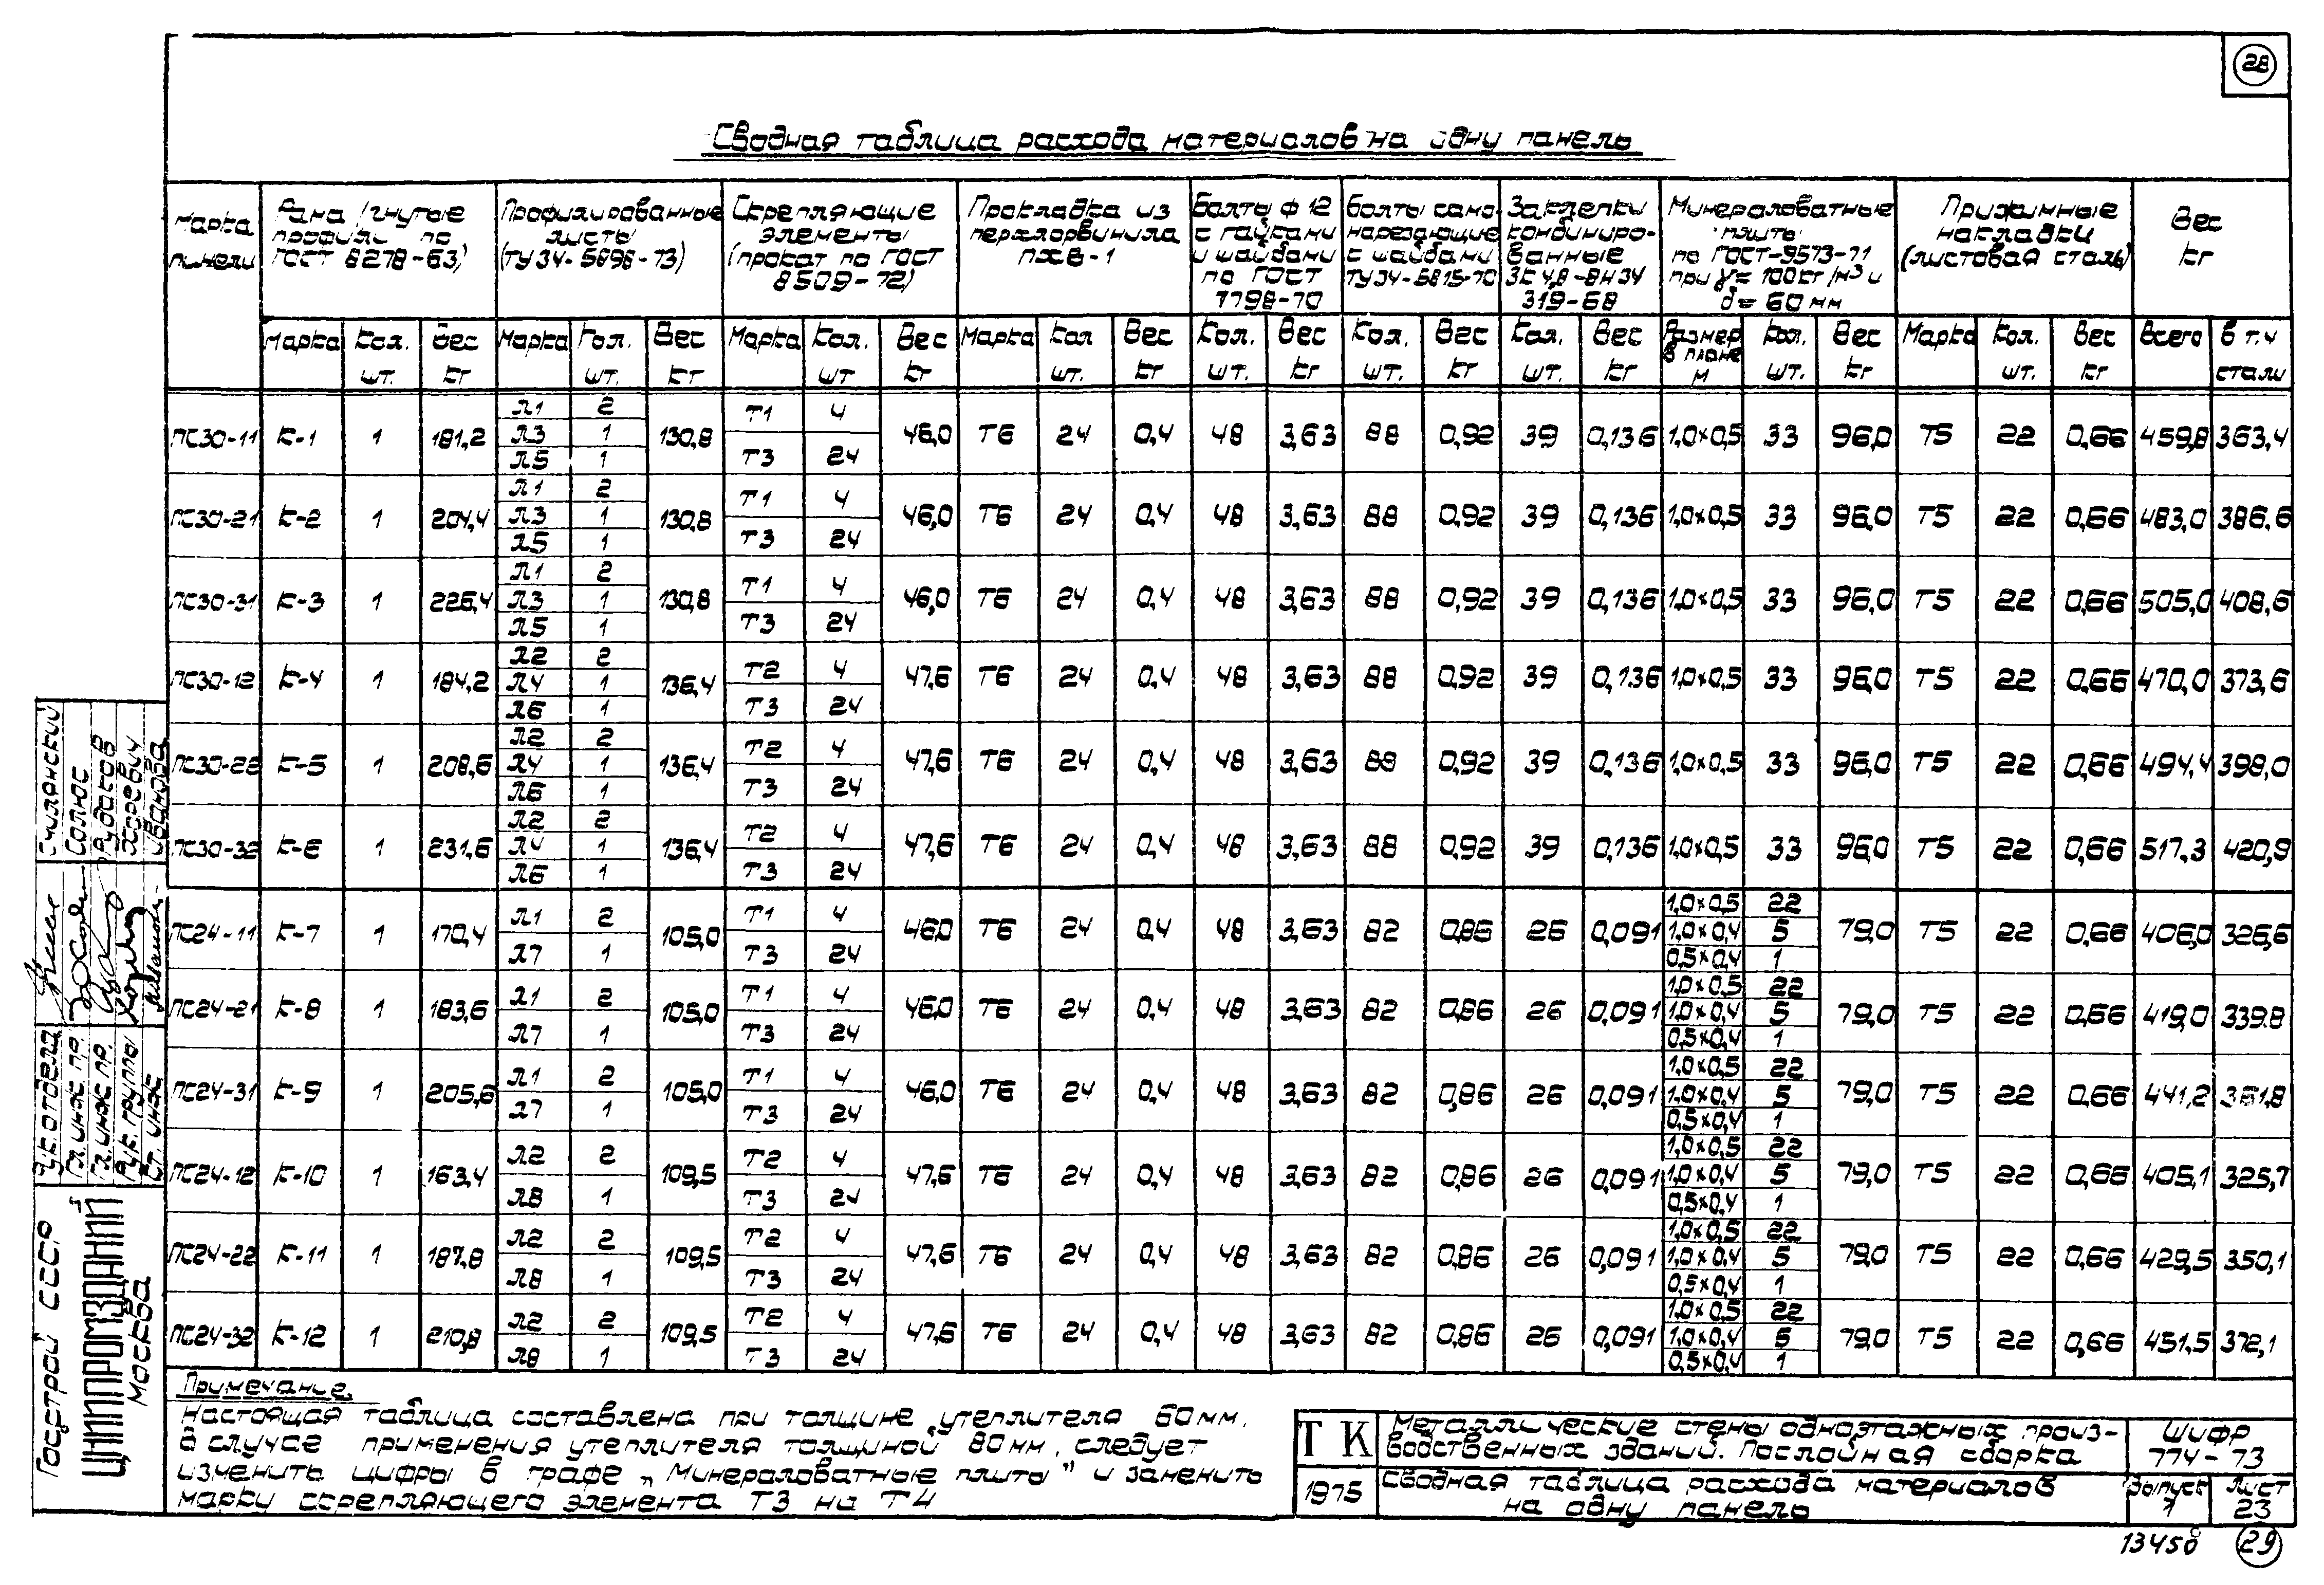 28
Сводная таблица расхода материалов на одну панель
Марка панели | Рама (гнутые профили по ГОСТ 8278-63) | Профилированные листы (ТУ34-5898-73) | Скрепляющие элементы (прокат по ГОСТ 8509-72) | Прокладка из перхлорвинила ПХВ-1 | Болты ф 12 с гайками и шайбами по ГОСТ 7798-70 | Болты само-нарезающие с шайбами ТУ34-5815-70 | Заклепки комбиниро-ванные ЗК 4,8-8Н34 319-68 | Минераловатные плиты по ГОСТ-9573-71 при γ=100кг/м³ и δ=60мм | Прижимные накладки (листовая сталь) | Вес кг
Марка | Кол. шт. | Вес кг | Марка | Кол. шт. | Вес кг | Марка | Кол. шт | Вес кг | Марка | Кол шт. | Вес кг | Кол. шт. | Вес кг | Кол. шт. | Вес кг | Кол. шт. | Вес кг | Размер в плане м | Кол. шт. | Вес кг | Марка | Кол. шт. | Вес кг | Всего | в т.ч стали
ПС30-11 | К-1 | 1 | 181,2 | Л1 Л3 Л5 | 2 1 1 | 130,8 | Т1 Т3 | 4 24 | 46,0 | Т6 | 24 | 0,4 | 48 | 3,63 | 88 | 0,92 | 39 | 0,136 | 1,0×0,5 | 33 | 96,0 | Т5 | 22 | 0,66 | 459,8 | 363,4
ПС30-21 | К-2 | 1 | 204,4 | Л1 Л3 Л5 | 2 1 1 | 130,8 | Т1 Т3 | 4 24 | 46,0 | Т6 | 24 | 0,4 | 48 | 3,63 | 88 | 0,92 | 39 | 0,136 | 1,0×0,5 | 33 | 96,0 | Т5 | 22 | 0,66 | 483,0 | 386,6
ПС30-31 | К-3 | 1 | 226,4 | Л1 Л3 Л5 | 2 1 1 | 130,8 | Т1 Т3 | 4 24 | 46,0 | Т6 | 24 | 0,4 | 48 | 3,63 | 88 | 0,92 | 39 | 0,136 | 1,0×0,5 | 33 | 96,0 | Т5 | 22 | 0,66 | 505,0 | 408,6
ПС30-12 | К-4 | 1 | 184,2 | Л2 Л4 Л6 | 2 1 1 | 136,4 | Т2 Т3 | 4 24 | 47,6 | Т6 | 24 | 0,4 | 48 | 3,63 | 88 | 0,92 | 39 | 0,136 | 1,0×0,5 | 33 | 96,0 | Т5 | 22 | 0,66 | 470,0 | 373,6
ПС30-22 | К-5 | 1 | 208,6 | Л2 Л4 Л6 | 2 1 1 | 136,4 | Т2 Т3 | 4 24 | 47,6 | Т6 | 24 | 0,4 | 48 | 3,63 | 88 | 0,92 | 39 | 0,136 | 1,0×0,5 | 33 | 96,0 | Т5 | 22 | 0,66 | 494,4 | 398,0
ПС30-32 | К-6 | 1 | 231,6 | Л2 Л4 Л6 | 2 1 1 | 136,4 | Т2 Т3 | 4 24 | 47,6 | Т6 | 24 | 0,4 | 48 | 3,63 | 88 | 0,92 | 39 | 0,136 | 1,0×0,5 | 33 | 96,0 | Т5 | 22 | 0,66 | 517,3 | 420,9
ПС24-11 | К-7 | 1 | 170,4 | Л1 Л7 | 2 1 | 105,0 | Т1 Т3 | 4 24 | 46,0 | Т6 | 24 | 0,4 | 48 | 3,63 | 82 | 0,86 | 26 | 0,091 | 1,0×0,5 1,0×0,4 0,5×0,4 | 22 5 1 | 79,0 | Т5 | 22 | 0,66 | 406,0 | 326,6
ПС24-21 | К-8 | 1 | 183,6 | Л1 Л7 | 2 1 | 105,0 | Т1 Т3 | 4 24 | 46,0 | Т6 | 24 | 0,4 | 48 | 3,63 | 82 | 0,86 | 26 | 0,091 | 1,0×0,5 1,0×0,4 0,5×0,4 | 22 5 1 | 79,0 | Т5 | 22 | 0,66 | 419,0 | 339.8
ПС24-31 | К-9 | 1 | 205,6 | Л1 Л7 | 2 1 | 105,0 | Т1 Т3 | 4 24 | 46,0 | Т6 | 24 | 0,4 | 48 | 3,63 | 82 | 0,86 | 26 | 0,091 | 1,0×0,5 1,0×0,4 0,5×0,4 | 22 5 1 | 79,0 | Т5 | 22 | 0,66 | 441,2 | 361,8
ПС24-12 | К-10 | 1 | 163,4 | Л2 Л8 | 2 1 | 109,5 | Т2 Т3 | 4 24 | 47,6 | Т6 | 24 | 0,4 | 48 | 3,63 | 82 | 0,86 | 26 | 0,091 | 1,0×0,5 1,0×0,4 0,5×0,4 | 22 5 1 | 79,0 | Т5 | 22 | 0,66 | 405,1 | 325,7
ПС24-22 | К-11 | 1 | 187,8 | Л2 Л8 | 2 1 | 109,5 | Т2 Т3 | 4 24 | 47,6 | Т6 | 24 | 0,4 | 48 | 3,63 | 82 | 0,86 | 26 | 0,091 | 1,0×0,5 1,0×0,4 0,5×0,4 | 22 5 1 | 79,0 | Т5 | 22 | 0,66 | 429,5 | 350,1
ПС24-32 | К-12 | 1 | 210,8 | Л2 Л8 | 2 1 | 109,5 | Т2 Т3 | 4 24 | 47,6 | Т6 | 24 | 0,4 | 48 | 3,63 | 82 | 0,86 | 26 | 0,091 | 1,0×0,5 1,0×0,4 0,5×0,4 | 22 5 1 | 79,0 | Т5 | 22 | 0,66 | 451,5 | 372,1
Примечание.
Настоящая таблица составлена при толщине утеплителя 60мм.
В случае применения утеплителя толщиной 80мм, следует
изменить цифры в графе „Минераловатные плиты" и заменить
марку скрепляющего элемента Т3 на Т4
ТК
1975
Металлические стены одноэтажных произ-
водственных зданий. Послойная сборка
Сводная таблица расхода материалов
на одну панель
Шифр
774-73
Выпуск
1
Лист
23
13450
29
Госстрой СССР
ЦНИИПРОМЗДАНИЙ
Москва
Рук. отдела
Гл. инж. пр.
Гл. инж. пр.
Рук. группы
Ст. инж
Смилянский
Солюс
Рудаков
Хоревич
Иванова